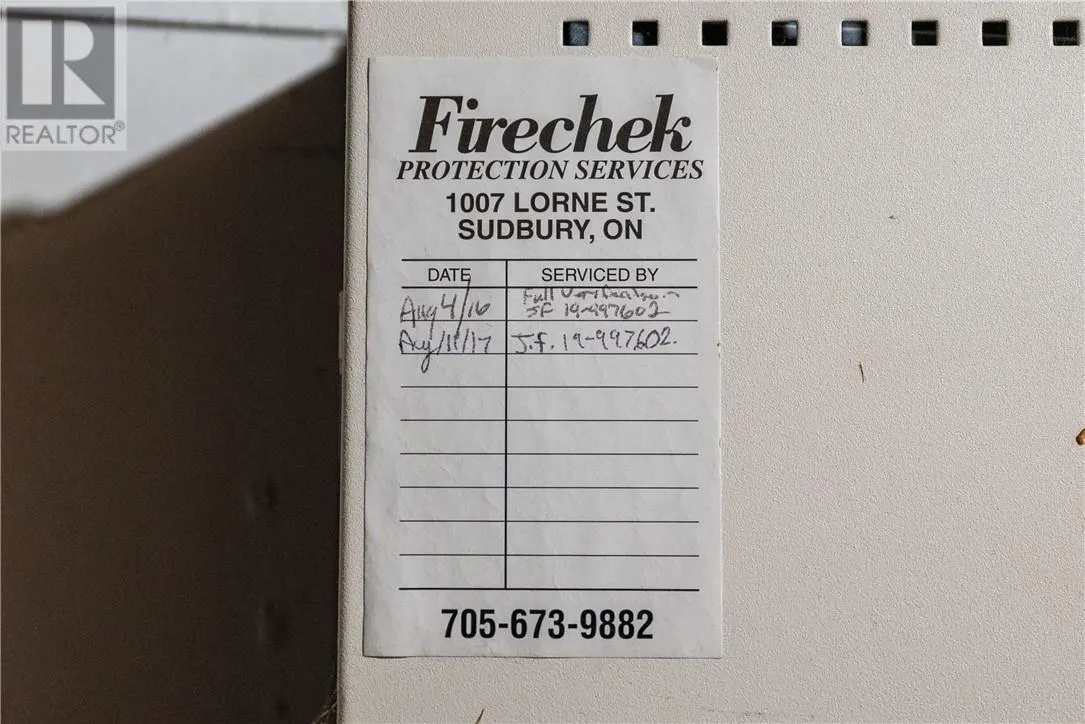 R
REALTOR®
Firechek
PROTECTION SERVICES
1007 LORNE ST.
SUDBURY, ON
DATE SERVICED BY
Full Verification
Aug 4/16 JF 19-997602
Aug/11/17 J.f. 19-997602.
705-673-9882